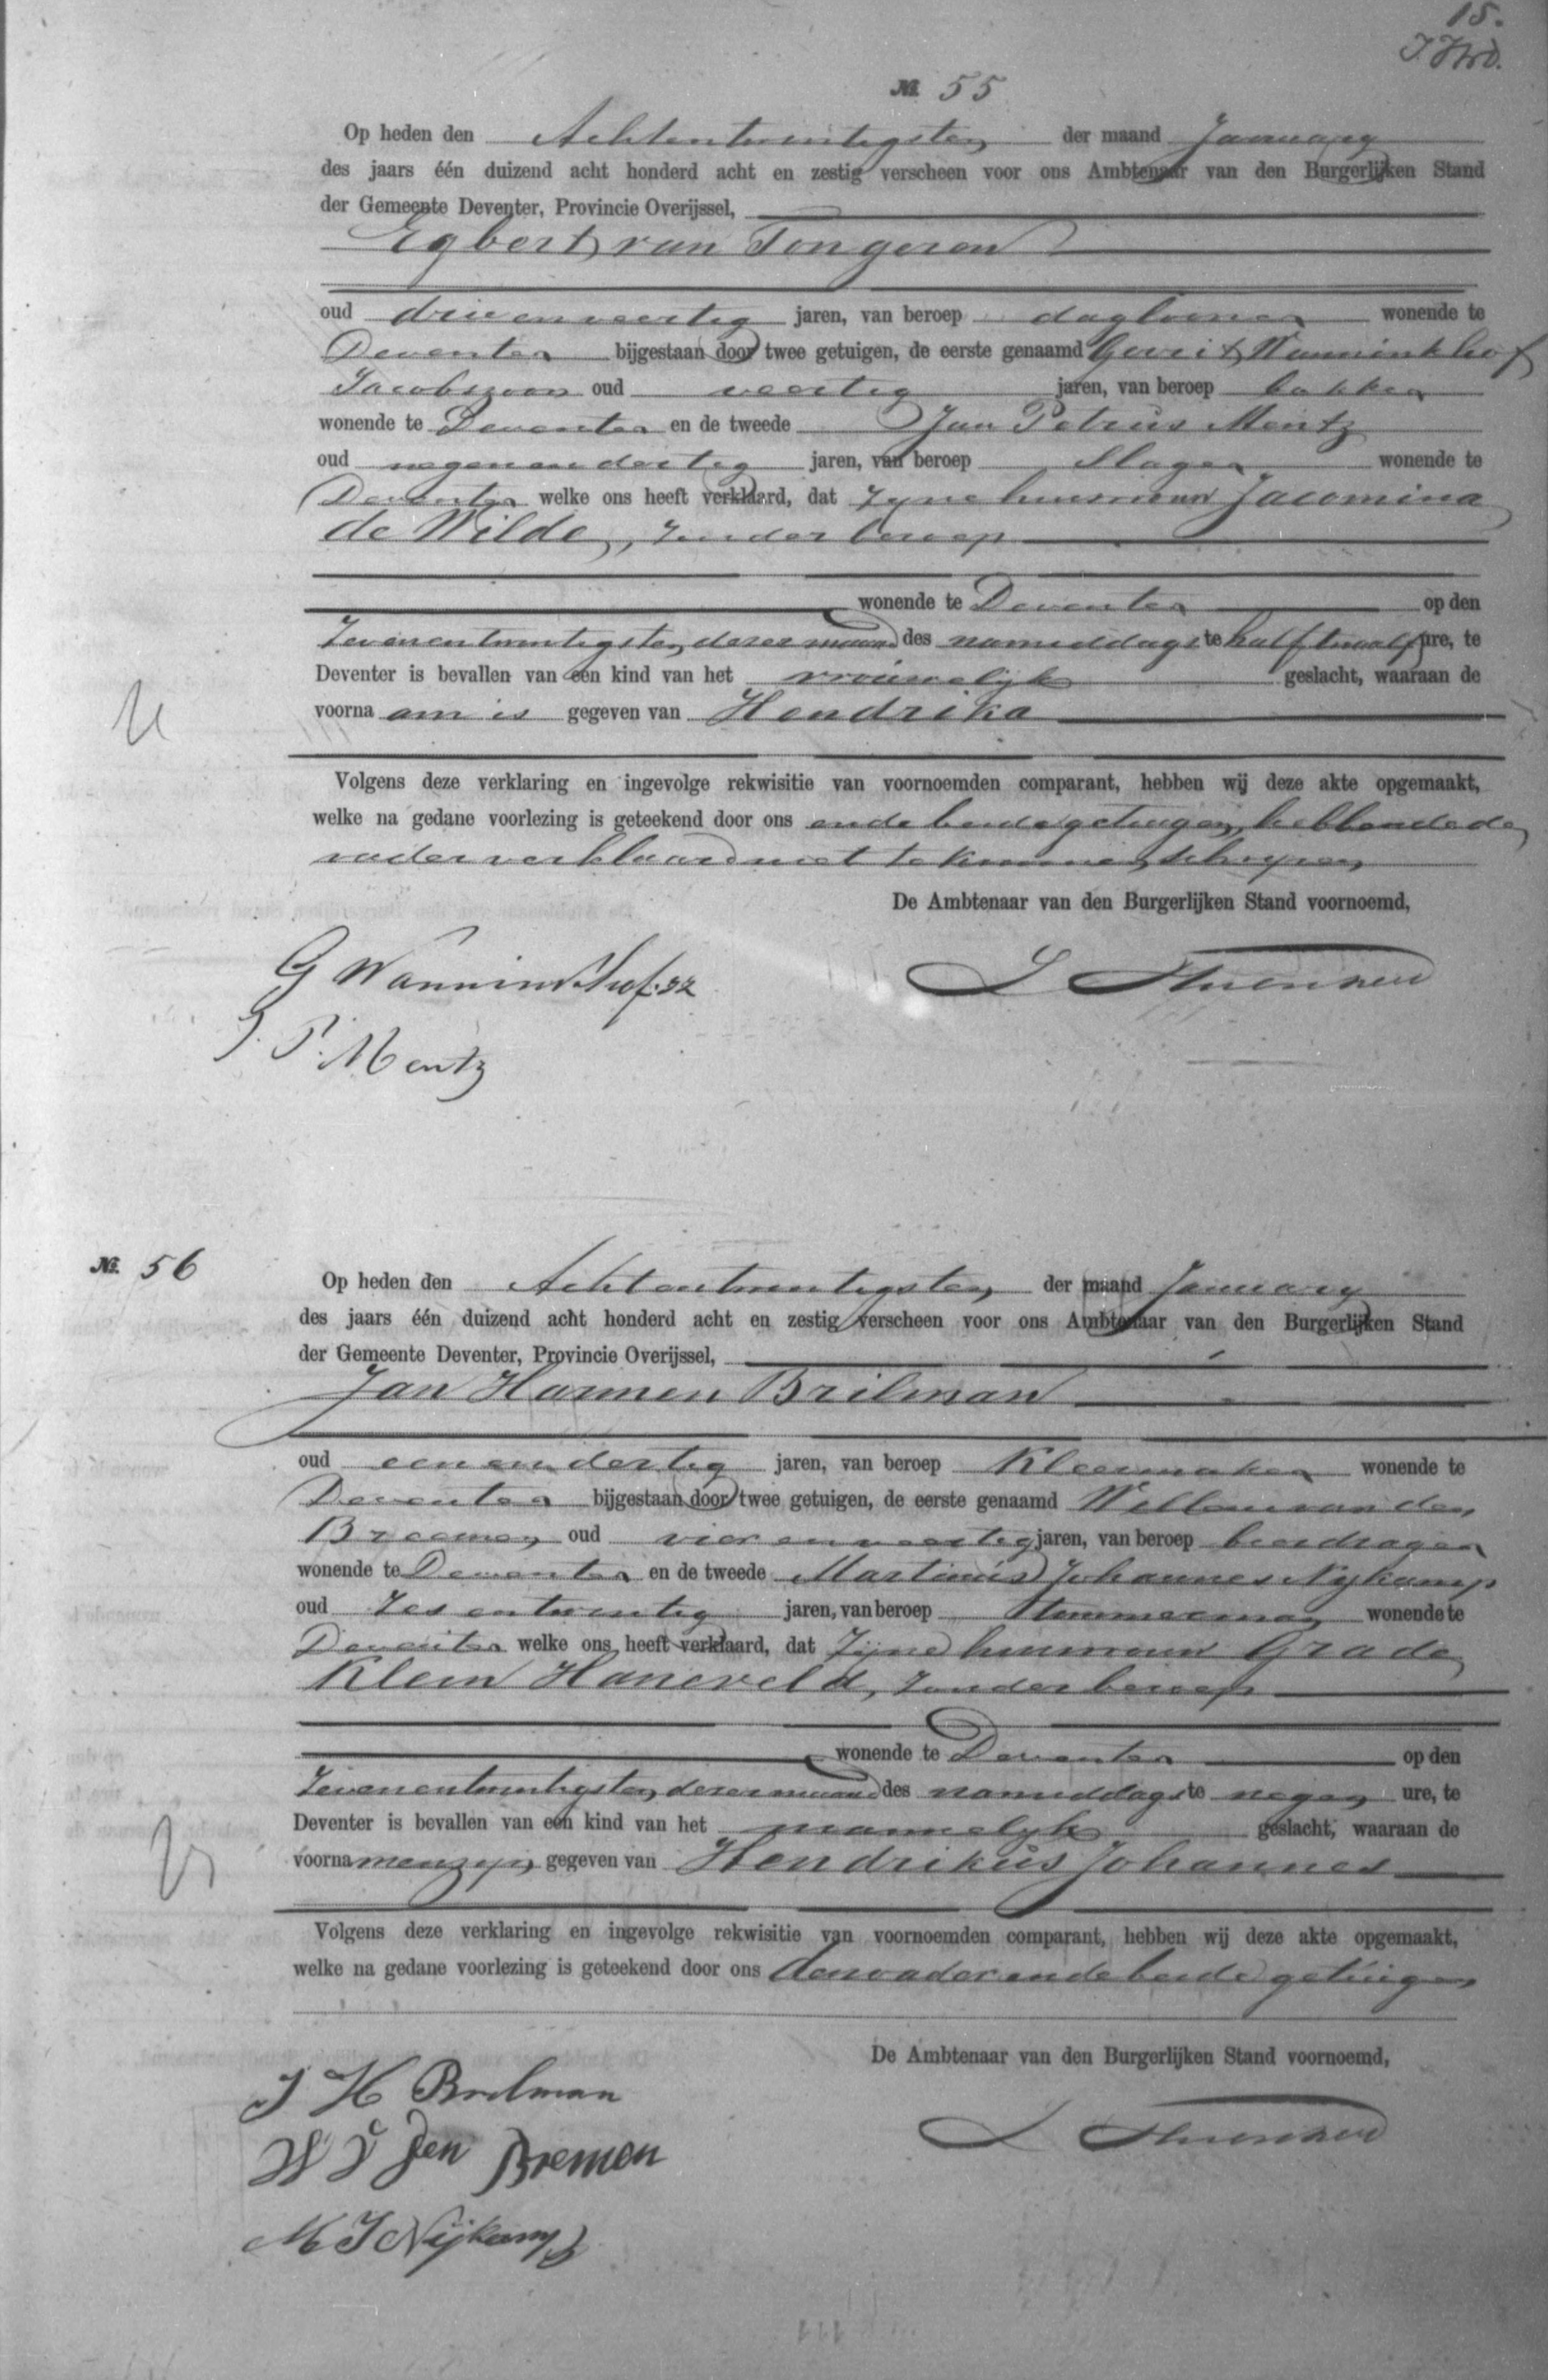 15.
№ 55
Op heden den Achtentwintigsten der maand January
des jaars één duizend acht honderd acht en zestig verscheen voor ons Ambtenaar van den Burgerlijken Stand
der Gemeente Deventer, Provincie Overijssel,
Egbert van Tongeren
oud drieenveertig jaren, van beroep daglooner wonende te
Deventer bijgestaan door twee getuigen, de eerste genaamd Gerrit Wanninkhof
Jacobszoon oud veertig jaren, van beroep bakker
wonende te Deventer en de tweede Jan Petrus Mentz
oud negenendertig jaren, van beroep Slager wonende te
Deventer welke ons heeft verklaard, dat Zyne huisvrouw Jacomina
de Wilde, zonder beroep
wonende te Deventer op den
Zevenentwintigsten dezer maand des namiddags te half twaalf ure, te
Deventer is bevallen van een kind van het vrouwelyk geslacht, waaraan de
voorna am is gegeven van Hendrika
Volgens deze verklaring en ingevolge rekwisitie van voornoemden comparant, hebben wij deze akte opgemaakt,
welke na gedane voorlezing is geteekend door ons en de beide getuigen, hebbende de
vader verklaard niet te kunnen schryven
De Ambtenaar van den Burgerlijken Stand voornoemd,
G Wanninkhof. Jz
J. P. Mentz
№ 56
Op heden den Achtentwintigsten der maand January
des jaars één duizend acht honderd acht en zestig verscheen voor ons Ambtenaar van den Burgerlijken Stand
der Gemeente Deventer, Provincie Overijssel,
Jan Harmen Brilman
oud eenendertig jaren, van beroep Kleermaker wonende te
Deventer bijgestaan door twee getuigen, de eerste genaamd Willem van den
Breemen oud vierenveertig jaren, van beroep
wonende te Deventer en de tweede Martinus Johannes Nykamp
oud Zesentwintig jaren, van beroep Timmerman wonende te
Deventer welke ons heeft verklaard, dat Zijne huisvrouw Grada
Klein Haneveld, zonder beroep
wonende te Deventer op den
Zevenentwintigsten dezer maand des namiddags te negen ure, te
Deventer is bevallen van een kind van het mannelyk geslacht, waaraan de
voorna men zyn gegeven van Hendrikus Johannes
Volgens deze verklaring en ingevolge rekwisitie van voornoemden comparant, hebben wij deze akte opgemaakt,
welke na gedane voorlezing is geteekend door ons den vader en de beide getuigen
De Ambtenaar van den Burgerlijken Stand voornoemd,
J H Brilman
W V den Bremen
M J Nijkamp